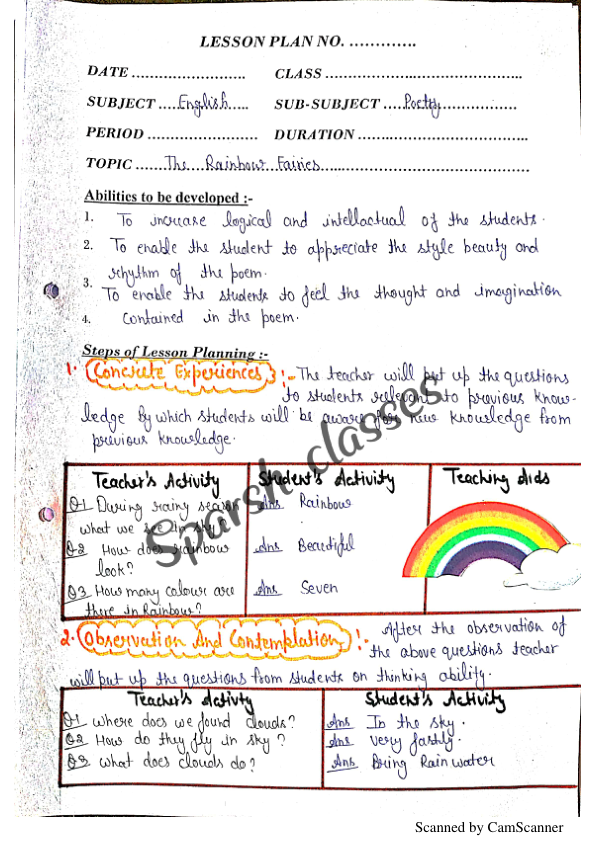 LESSON PLAN NO. .............
DATE ....................... CLASS .......................................
SUBJECT ....English..... SUB-SUBJECT ....Poetry................
PERIOD ...................... DURATION .................................
TOPIC ......The Rainbow Fairies..........................................
Abilities to be developed :-
1. To increase logical and intellactual of the students.
2. To enable the student to appreciate the style beauty and
rhythm of the poem.
3. To enable the students to feel the thought and imagination
4. contained in the poem.
Steps of Lesson Planning :-
1. Concrete Experiences :- The teacher will put up the questions
to students relevant to previous know-
ledge by which students will be aware for new knowledge from
previous knowledge.
Teacher's Activity Student's Activity Teaching Aids
Q1 During rainy season Ans Rainbow.
what we see in sky?
Q2 How does rainbow Ans Beautiful
look?
Q3 How many colour are Ans Seven
there in Rainbow?
2. Observation And Contemplation :- After the observation of
the above questions teacher
will put up the questions from students on thinking ability.
Teacher's Activty Student's Activity
Q1 where does we found clouds? Ans In the sky.
Q2 How do they fly in sky? Ans very fastly.
Q3 what does clouds do? Ans Bring Rain water
Sparsh classes
Scanned by CamScanner